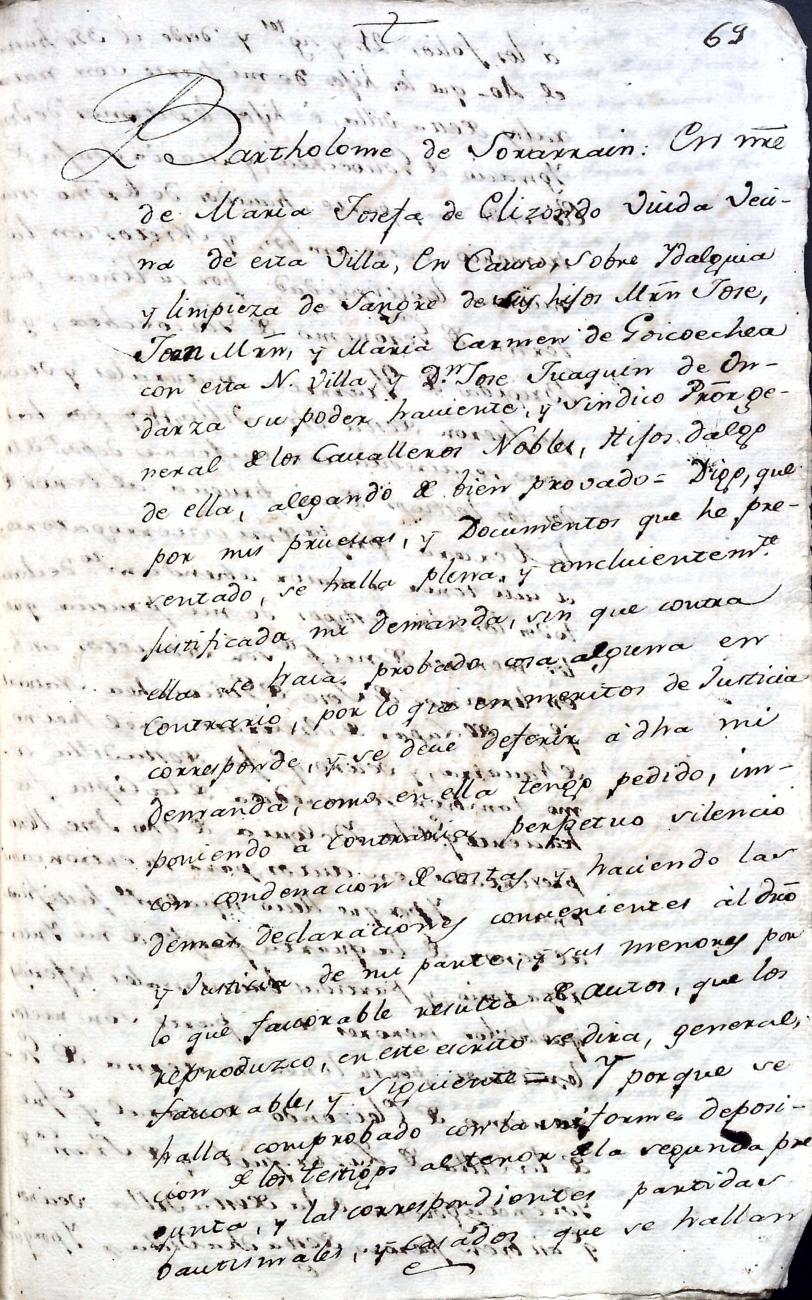 69
Bartholome de Sorarrain: En nre
de Maria Josefa de Elizondo Viuda Veci-
na de esta Villa, en Causa, sobre Ydalguia
y limpieza de Sangre de sus hijos Mrn Jose,
Joan Mrn, y Maria Carmen de Goicoechea
con esta N. Villa, y Dn Jose Juaquin de On-
darza su poder haviente, y sindico Pror ge-
neral de los Cavalleros Nobles, Hijos dalgo
de ella, alegando de bien provado= Digo, que
por mis pruebas, y Documentos que he pre-
sentado, se halla plena, y concluientemte
justificada mi demanda, sin que contra
ella se haia probado cosa alguna en
contrario, por lo que en meritos de Justicia
corresponde, y se deve deferir à dha mi
demanda, como en ella tengo pedido, im-
poniendo a contraria perpetuo silencio
con condenacion de costas y haciendo las
demas declaraciones convenientes àl dro
y Justicia de mi parte, y sus menores por
lo que favorable resulta de autos, que los
reproduzco, en este escrito se dira, general,
favorable, y siguiente= Y porque se
halla comprobado con la uniforme deposi-
cion de los testigos al tenor de la segunda pre
gunta, y las correspondientes partidas
bautismales, y casados que se hallan